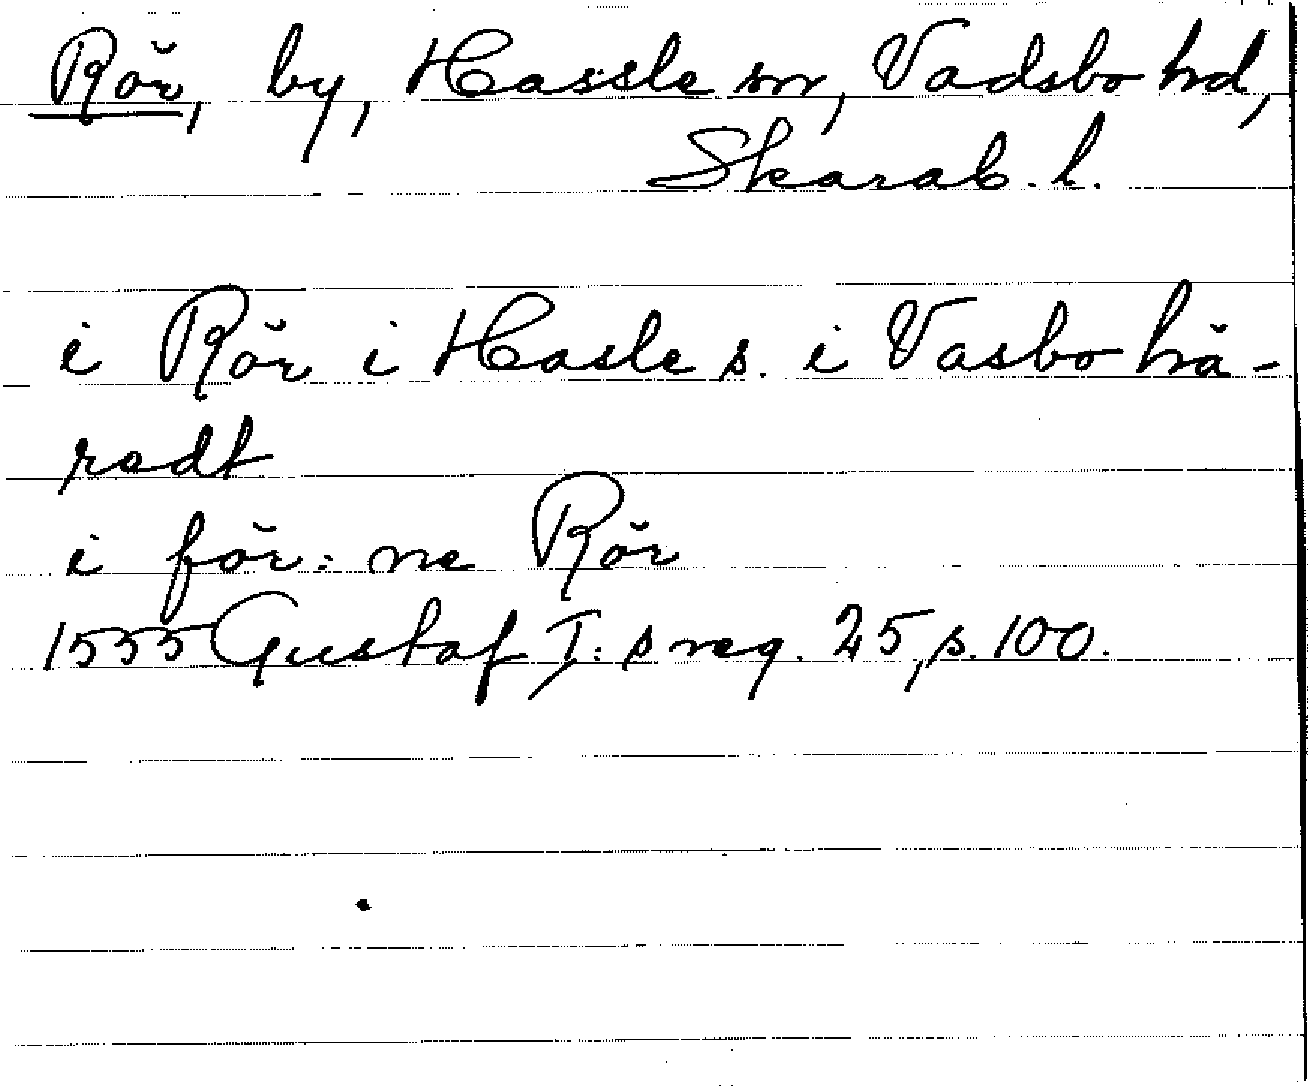 Rör, by, Hassle sn, Vadsbo hd,
Skarab. l.
i Rör i Hasle s. i Vasbo hä-
radt
i för:ne Rör
1555 Gustaf I:s reg. 25, s. 100.